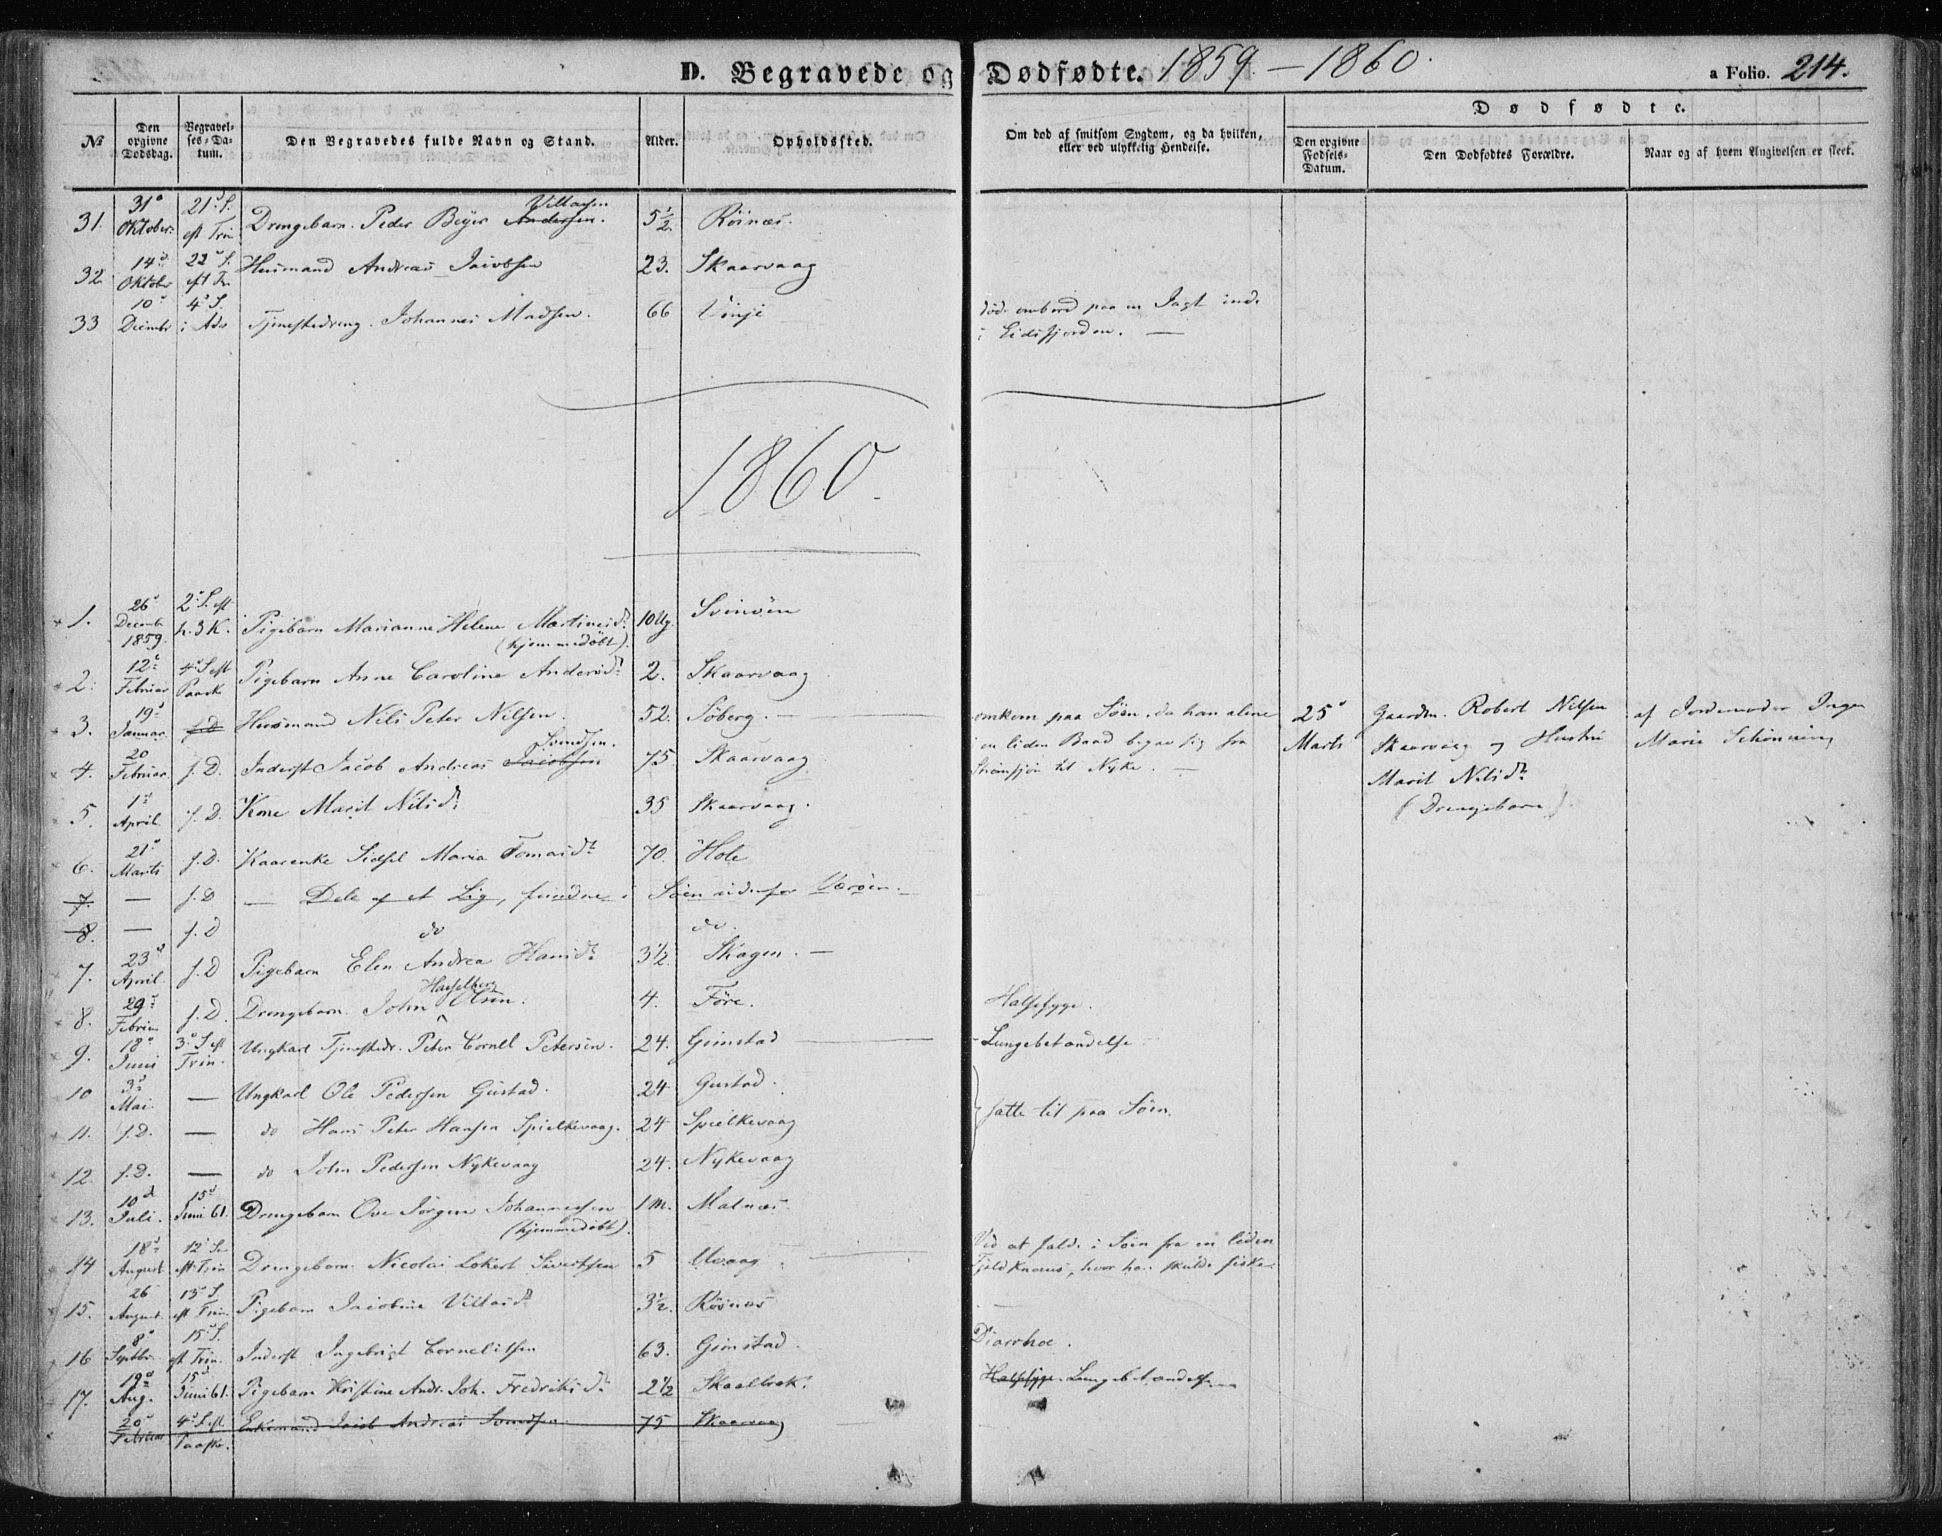 D. Begravede og Dødfødte. 1859 – 1860.
a Folio. 214.
№
Den opgivne Dødsdag.
Begravelses-Datum.
Den Begravedes fulde Navn og Stand.
Alder.
Opholdssted.
Om død af smitsom Sygdom, og da hvilken, eller ved ulykkelig Hendelse.
Dødfødte.
Den opgivne Fødsels-Datum.
Den Dødfødtes Forældre.
Naar og af hvem Angivelsen er skeet.
31. 31 Oktober 21 S. eft Trin Drengebarn Peder Beyer Andersen Villassen 5½ Röinæs.
32 14 Oktober 22 S. eft Tr. Huusmand Andreas Jacobsen 23. Skaarvaag
33 10 Decembr 4 S. i Adv Tjenestedreng Johannes Madsen. 66 Vinje død ombord paa en Jagt inde
i Eidsfjorden. —
1860.
1. 26 Decemb 1859. 2 S. eft h. 3 K. Pigebarn Marianne Helene Martinsd. (hjemmedöbt) 10 Ug. Svinöen
2. 12 Februar 4 S eft Paask Pigebarn Anne Caroline Andersd. 2. Skaarvaag
3. 19 Januar f. D. Huusmand Nils Peter Nilsen. 52. Söberg. omkom paa Söen, da han alene
i en liden Baad begav sig fra
til Nyke. —
25 Marts Gaardm. Robert Nilsen
Skaarvaag og Hustru
Marit Nilsd.
(Drengebarn).
af Jordemoder Inger
Marie Schönning
4. 20 Februar f. D. Inderst Jacob Andreas Jacobsen Svendsen. 75. Skaarvaag
5. 1 April f. D. Kone Marit Nilsd. 35 Skaarvaag.
6. 21 Marts f. D. Kaarenke Sidsel Maria Tomasd. 70. Hole
7. — f. D — Dele af et Lig, fundne i Söen udenfor Væröen. —
8. — f. D do do.
7. 23 April f. D Pigebarn Elen Andrea Hansd. 3½. Skagen. —
8. 29 Februar f. D. Drengebarn. John Hasselberg Olsen. 4. Före. Halssyge.
9. 18 Juni 3 S. eft Trin. Ungkarl Tjenestedr. Peter Cornel. Petersen. 24. Gimstad Lungebetændelse
10 3 Mai. — Ungkarl Ole Pedersen Gustad. 24 Gustad.
11. f. D. — do Hans Peter Hansen Spielkevaag. 24 Spielkevaag satte til paa Söen.
12. f. D. — do John Pedersen Nykevaag 24. Nykevaag
13. 10 Juli. 15 Juni 61. Drengebarn Ove Jörgen Johannessen (hjemmedöbt) 1 M. Malnæs.
14 18 August 12 S. eft. Trin Drengebarn Nicolai Lokert Sivertsen 5 Uvaag Ved at falde i Söen fra en liden
Fjeldknaus, hvor han skulde fiske.
15. 26 August 13 S. eft Trin. Pigebarn Jacobine Villasd. 3½. Röinæs
16 8 Septbr. 15 S. eft Trin. Inderst Ingebrigt Cornelissen 63. Gimstad. Diarrhoe.
17. 19 Aug. 15 Juni 61. Pigebarn Kristine Andr. Joh. Fredriksd. 2½ Skaalbrek. Halssyge Lungebetændelse
20 Februar 4 S. eft Paaske. Enkemand Jacob Andreas Svendsen 75 Skaarvaag